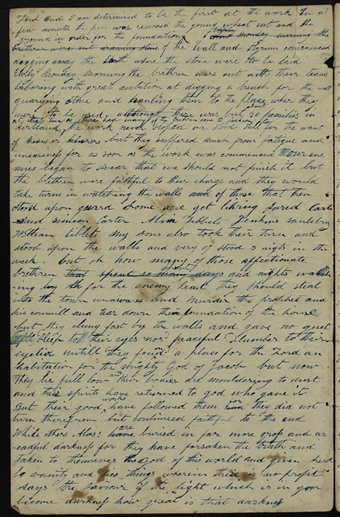 Lord and I am determined to be the first at the work In a
few minutes the fence was removed the young wheat cut and the
ground in order for the foundation Early monday morning the
brethren were out of the wall and Hyrum commenced
digging away the earth where the stone were to be laid
Early Monday morning the brethren were out with their teams
laboring with great ambition at digging a trench for the wall
quarying stone and hauling them to the place where they
were to be used although there were but 30 families in
kirtland the work never stoped or stood still for the want
of hewers but they suffered much from fatigue and
uneasiness for as soon as the work was commenced our ene
mies began to swear that we should not finish it but
the brethren were faithful to their charge and they would
take turns in watching the walls and of those that then
stood upon guard Some are yet living Jared Carter
and simeon Carter Alva Jenkins salisbury
My sons also took their turn and
stood upon the walls and very often stood 3 nights in the
week but oh how many of those affectionate
brethren that spent so many days and nights watch
ing for the enemy least they should steal
into the town unawares and murder the prophet and
his council and tear down the foundation of the house
but they clung fast by the walls and gave no quiet
sleep to their eyes nor peaceful slumber to their
eyelid untill they found a place for the Lord an
habitation for the mighty God of Jacob but now
they lie full low their bodies are mouldering to dust
and their spirits have returned to god who gave it
But their good works have followed them for they did not
turn therefrom but continued faithful to the end
While others Alas are buried in far more and
dreadful darkness for they have forsaken the truth and
taken to themselves the god of this world and given heed
to vanity and lies things wherein there is no profit
says the Saviour If the light which is in you
become darkness how great is that darkness